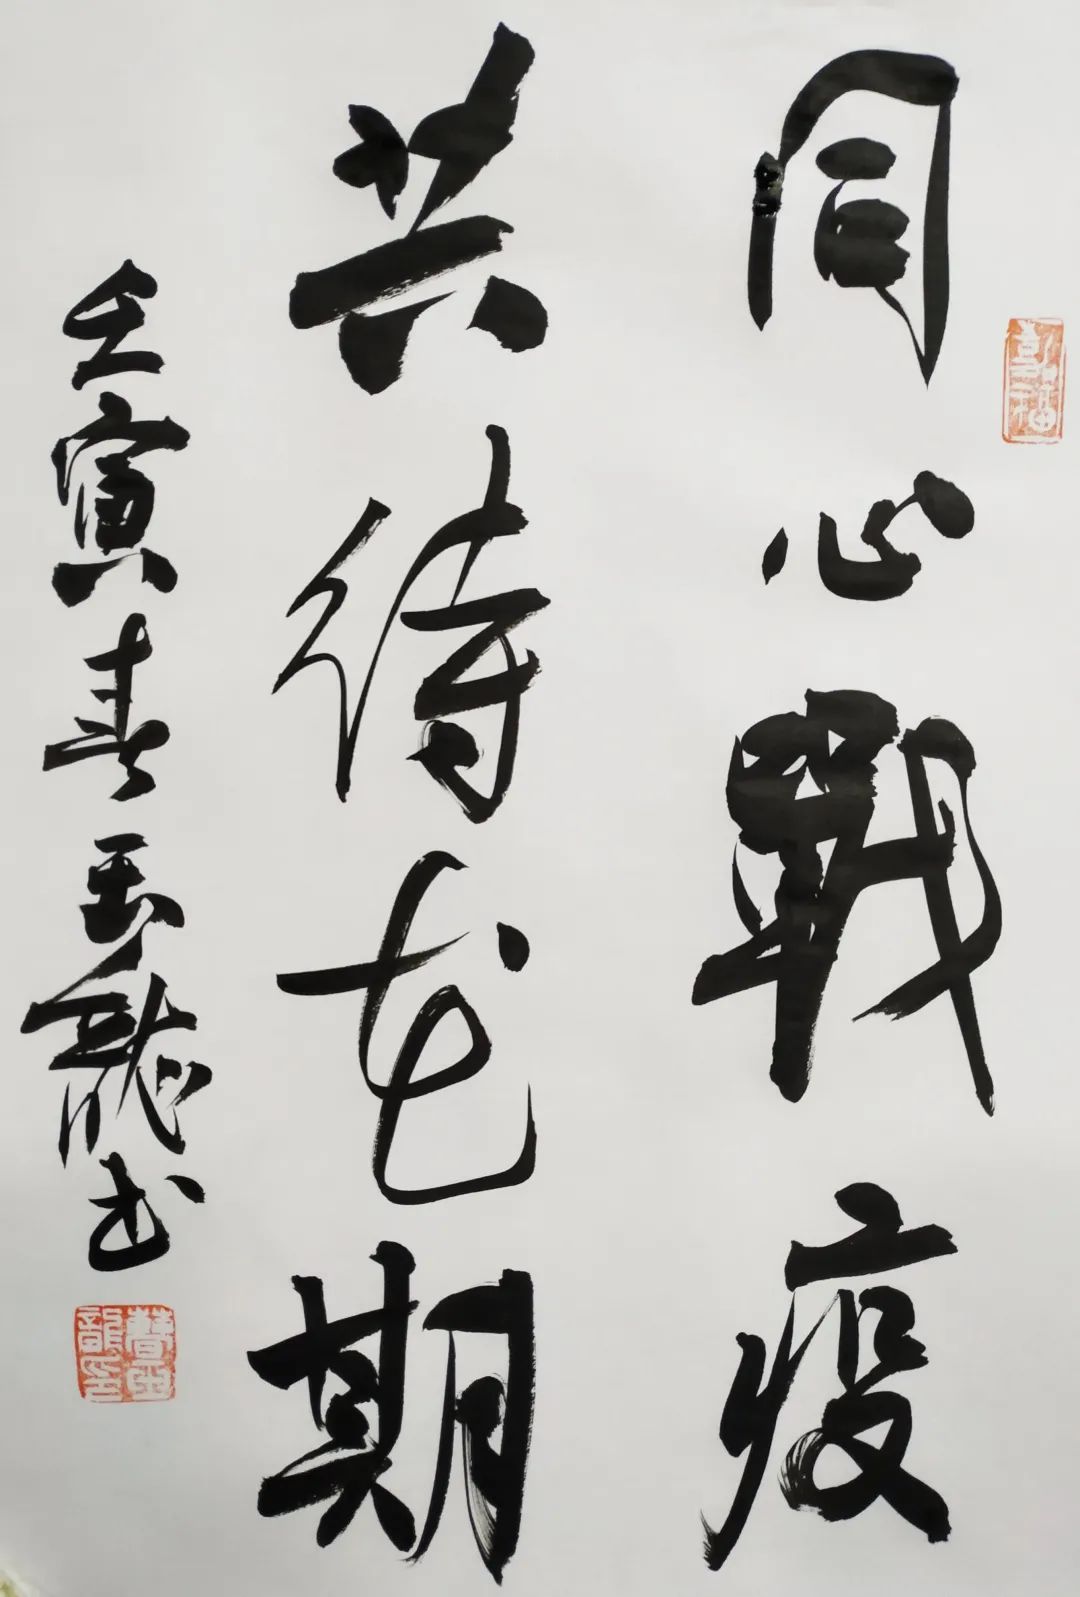 同心戰疫
共待花期
壬寅春龍书